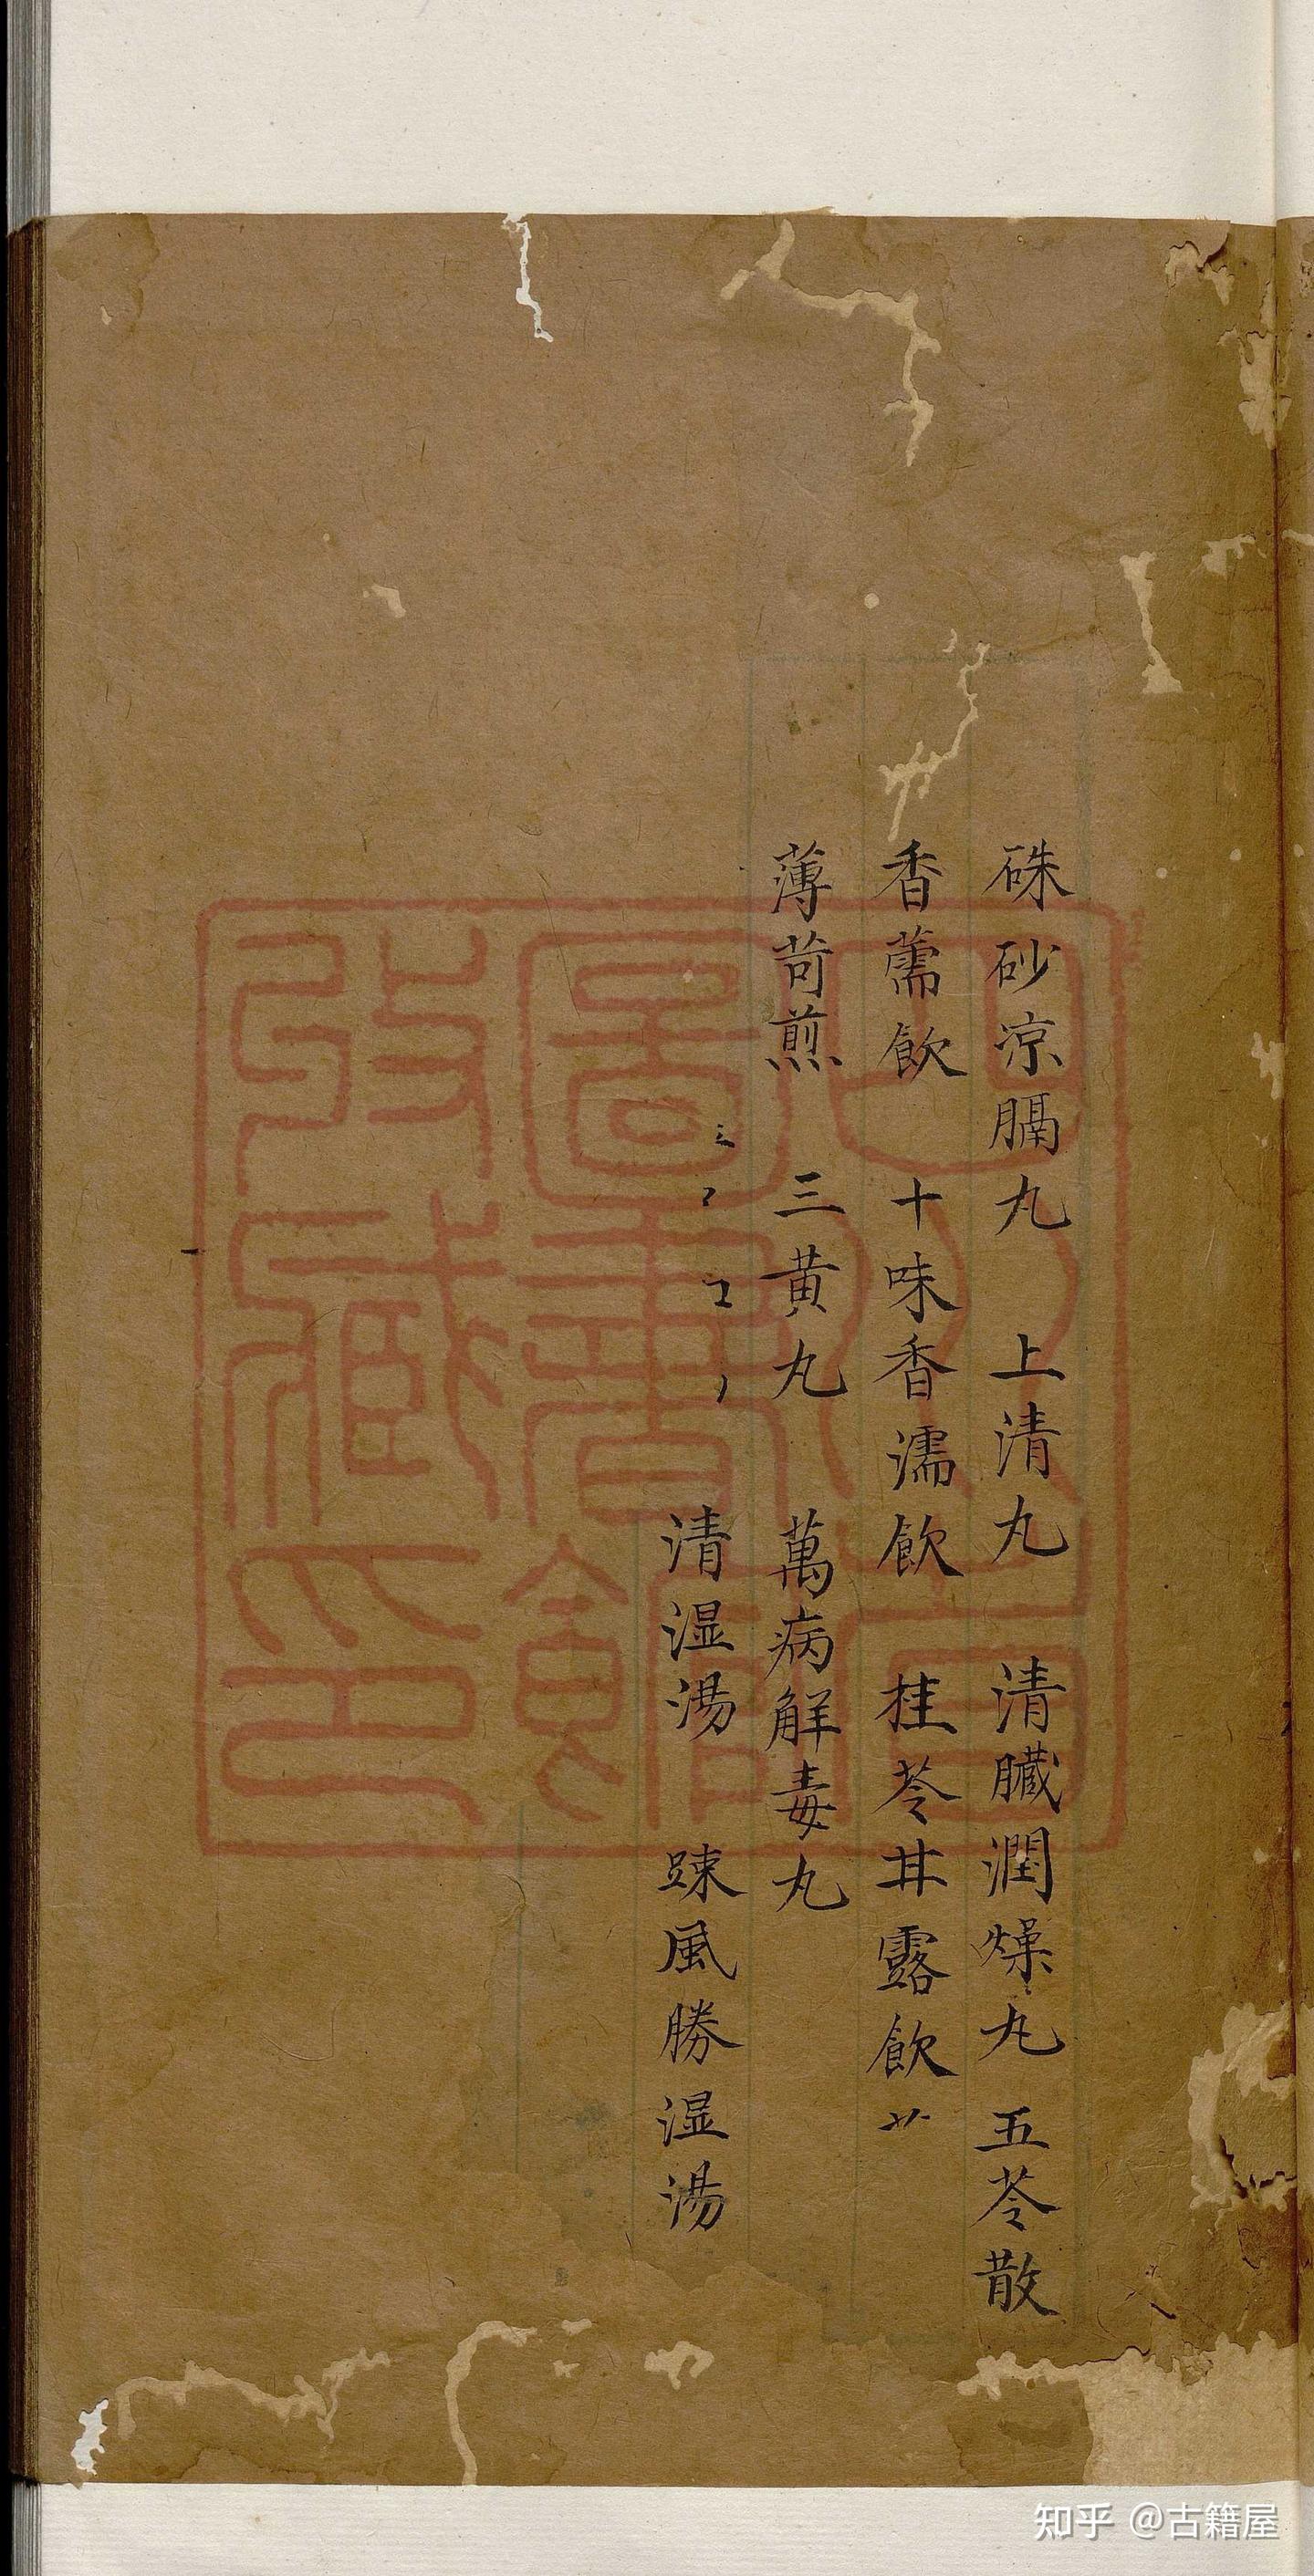 硃砂凉膈丸 上清丸 清臓潤燥丸 五苓散
香薷飲 十味香濡飲 桂苓甘露飲
薄苛煎 三黄丸 萬病解毒丸
清湿湯 踈風勝湿湯
圖書館
攷藏印
知乎 @古籍屋